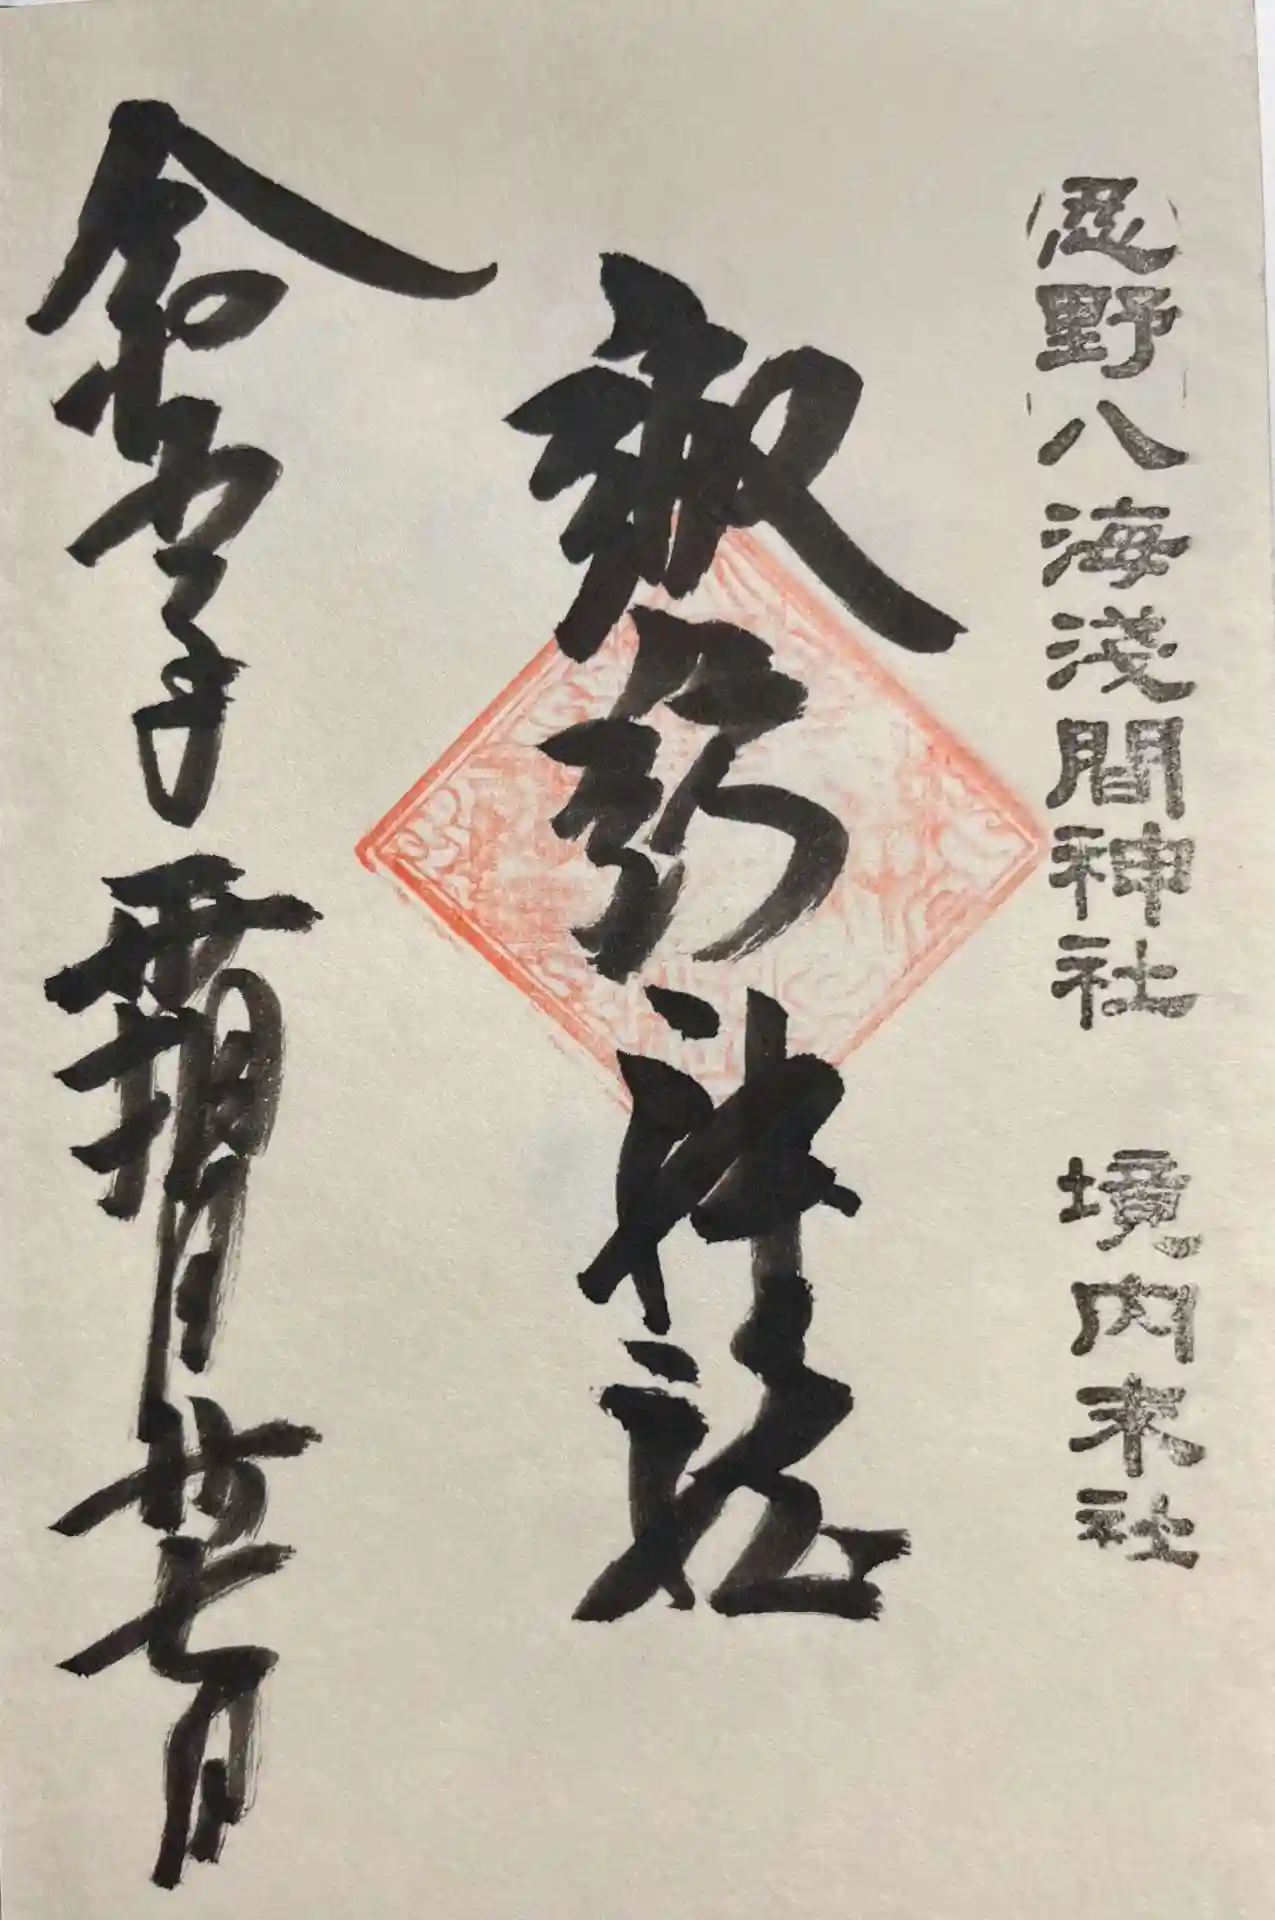 忍野八海淺間神社　境内末社
諏訪神社
令和庚子霜月廿七日